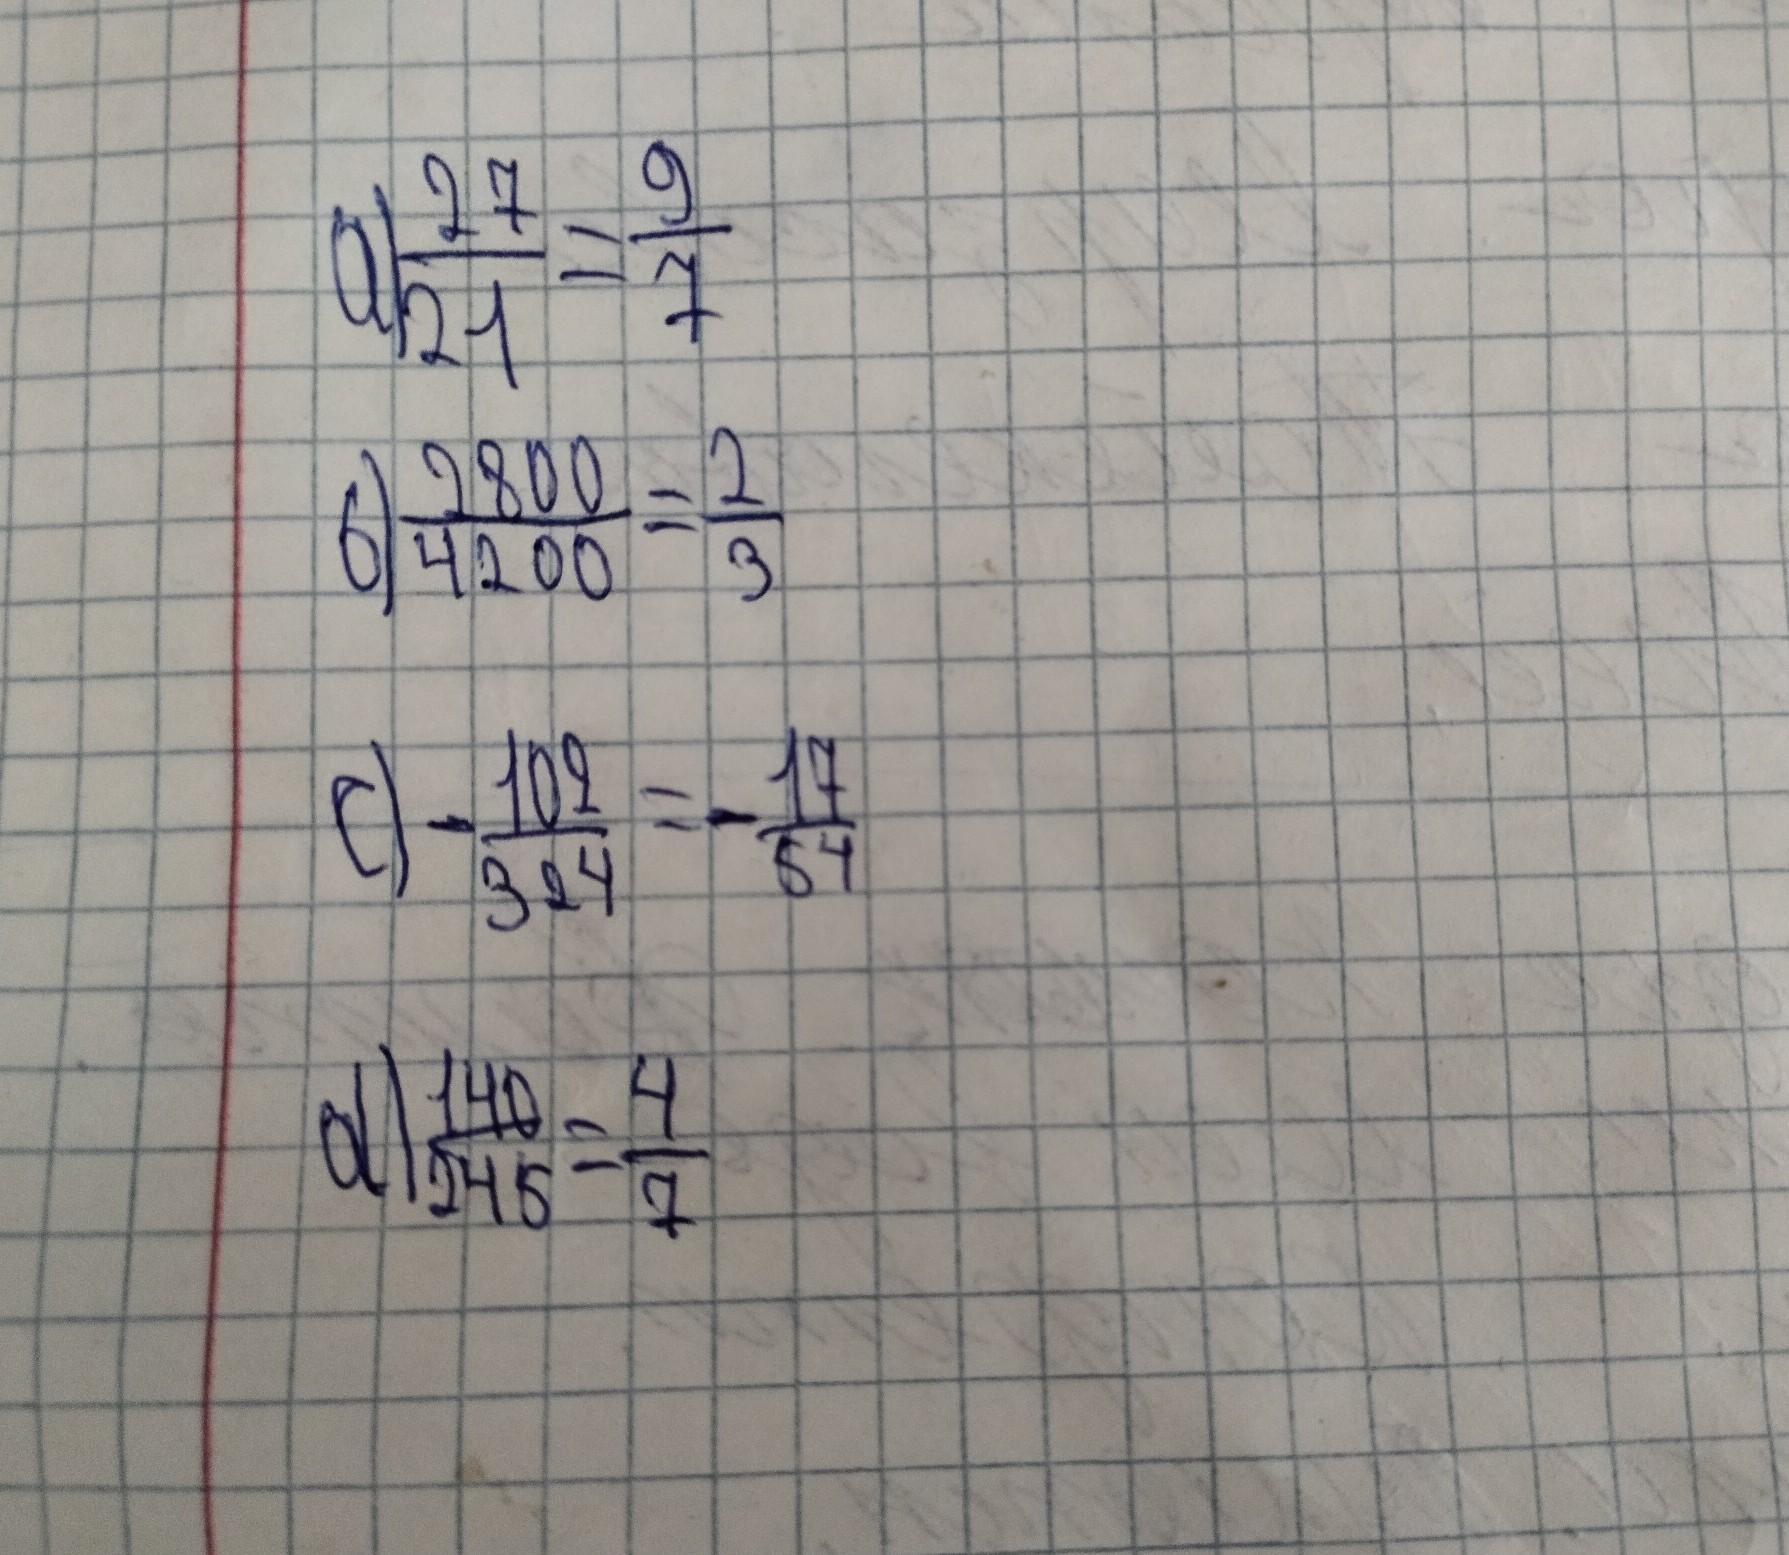 a) 27/21 = 9/7
б) 2800/4200 = 2/3
c) - 102/324 = - 17/54
d) 140/245 = 4/7